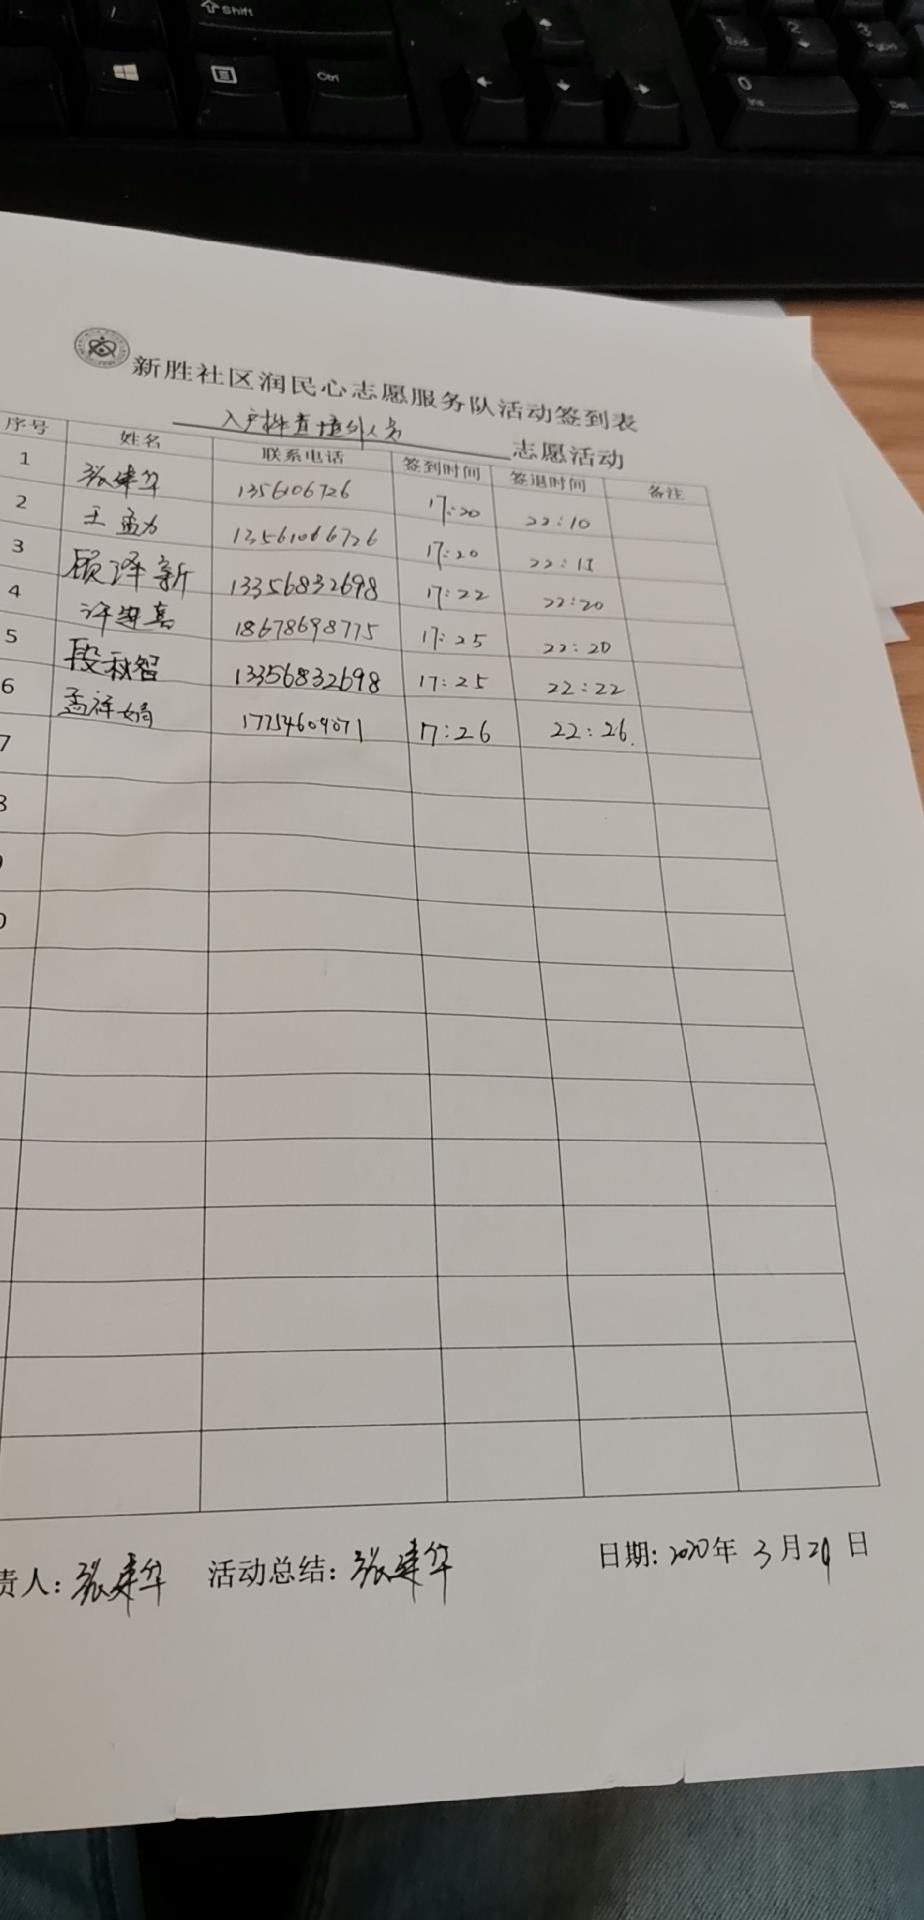 Shift
Ctrl
1 End
2
3 PgDn
0 Ins
Del
新胜社区润民心志愿服务队活动签到表
入户排查境外人员 志愿活动
序号 姓名 联系电话 签到时间 签退时间 备注
1 张建华 1356106726 17:20 22:10
2 王孟力 13561066726 17:20 22:11
3 顾泽新 13356832698 17:22 22:20
4 许 18678698775 17:25 22:20
5 段秋智 13356832698 17:25 22:22
6 孟祥娟 17754609071 17:26 22:26.
7
8
责人: 张建华 活动总结: 张建华 日期: 2020年 3月29日